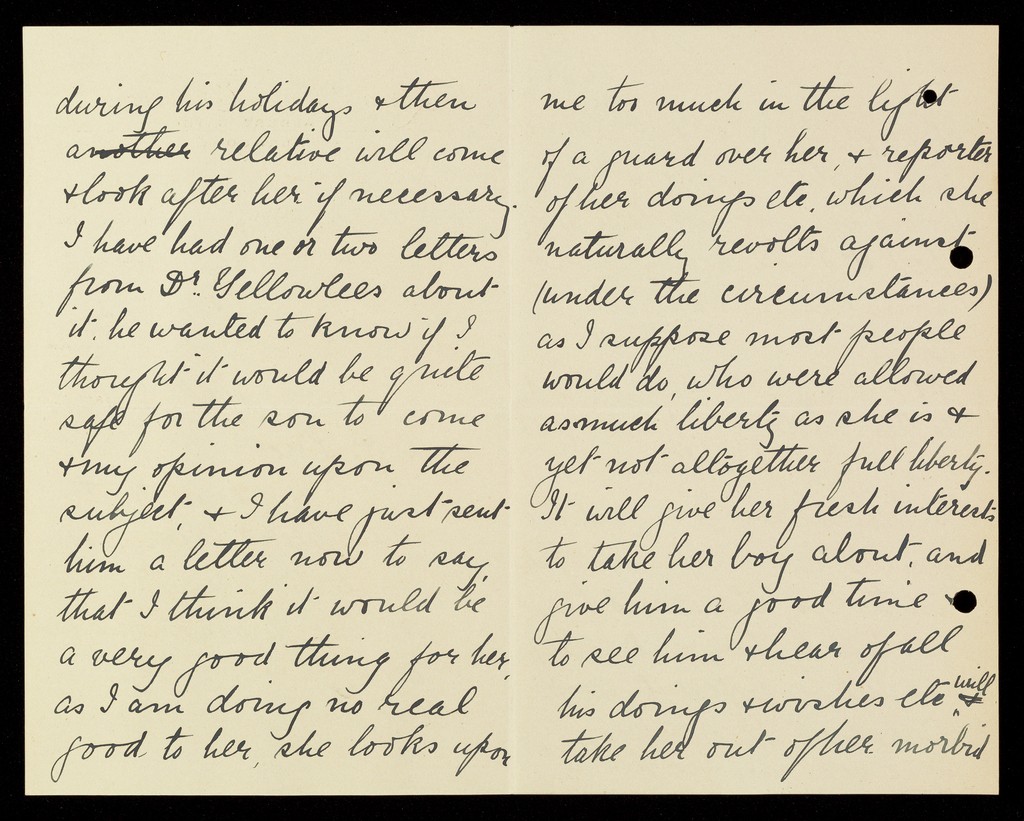 during his holidays & then
another relative will come
& look after her if necessary.
I have had one or two letters
from Dr. Yellowlees about
it. he wanted to know if I
thought it would be quite
safe for the son to come
& my opinion upon the
subject, & I have just sent
him a letter now to say,
that I think it would be
a very good thing for her,
as I am doing no real
good to her, she looks upon
me too much in the light
of a guard over her, & reporter
of her doings etc, which she
naturally revolts against
(under the circumstances)
as I suppose most people
would do, who were allowed
as much liberty as she is &
yet not altogether full liberty.
It will give her fresh interests
to take her boy about, and
give him a good time &
to see him & hear of all
his doings & wishes etc, will
take her out of her morbid